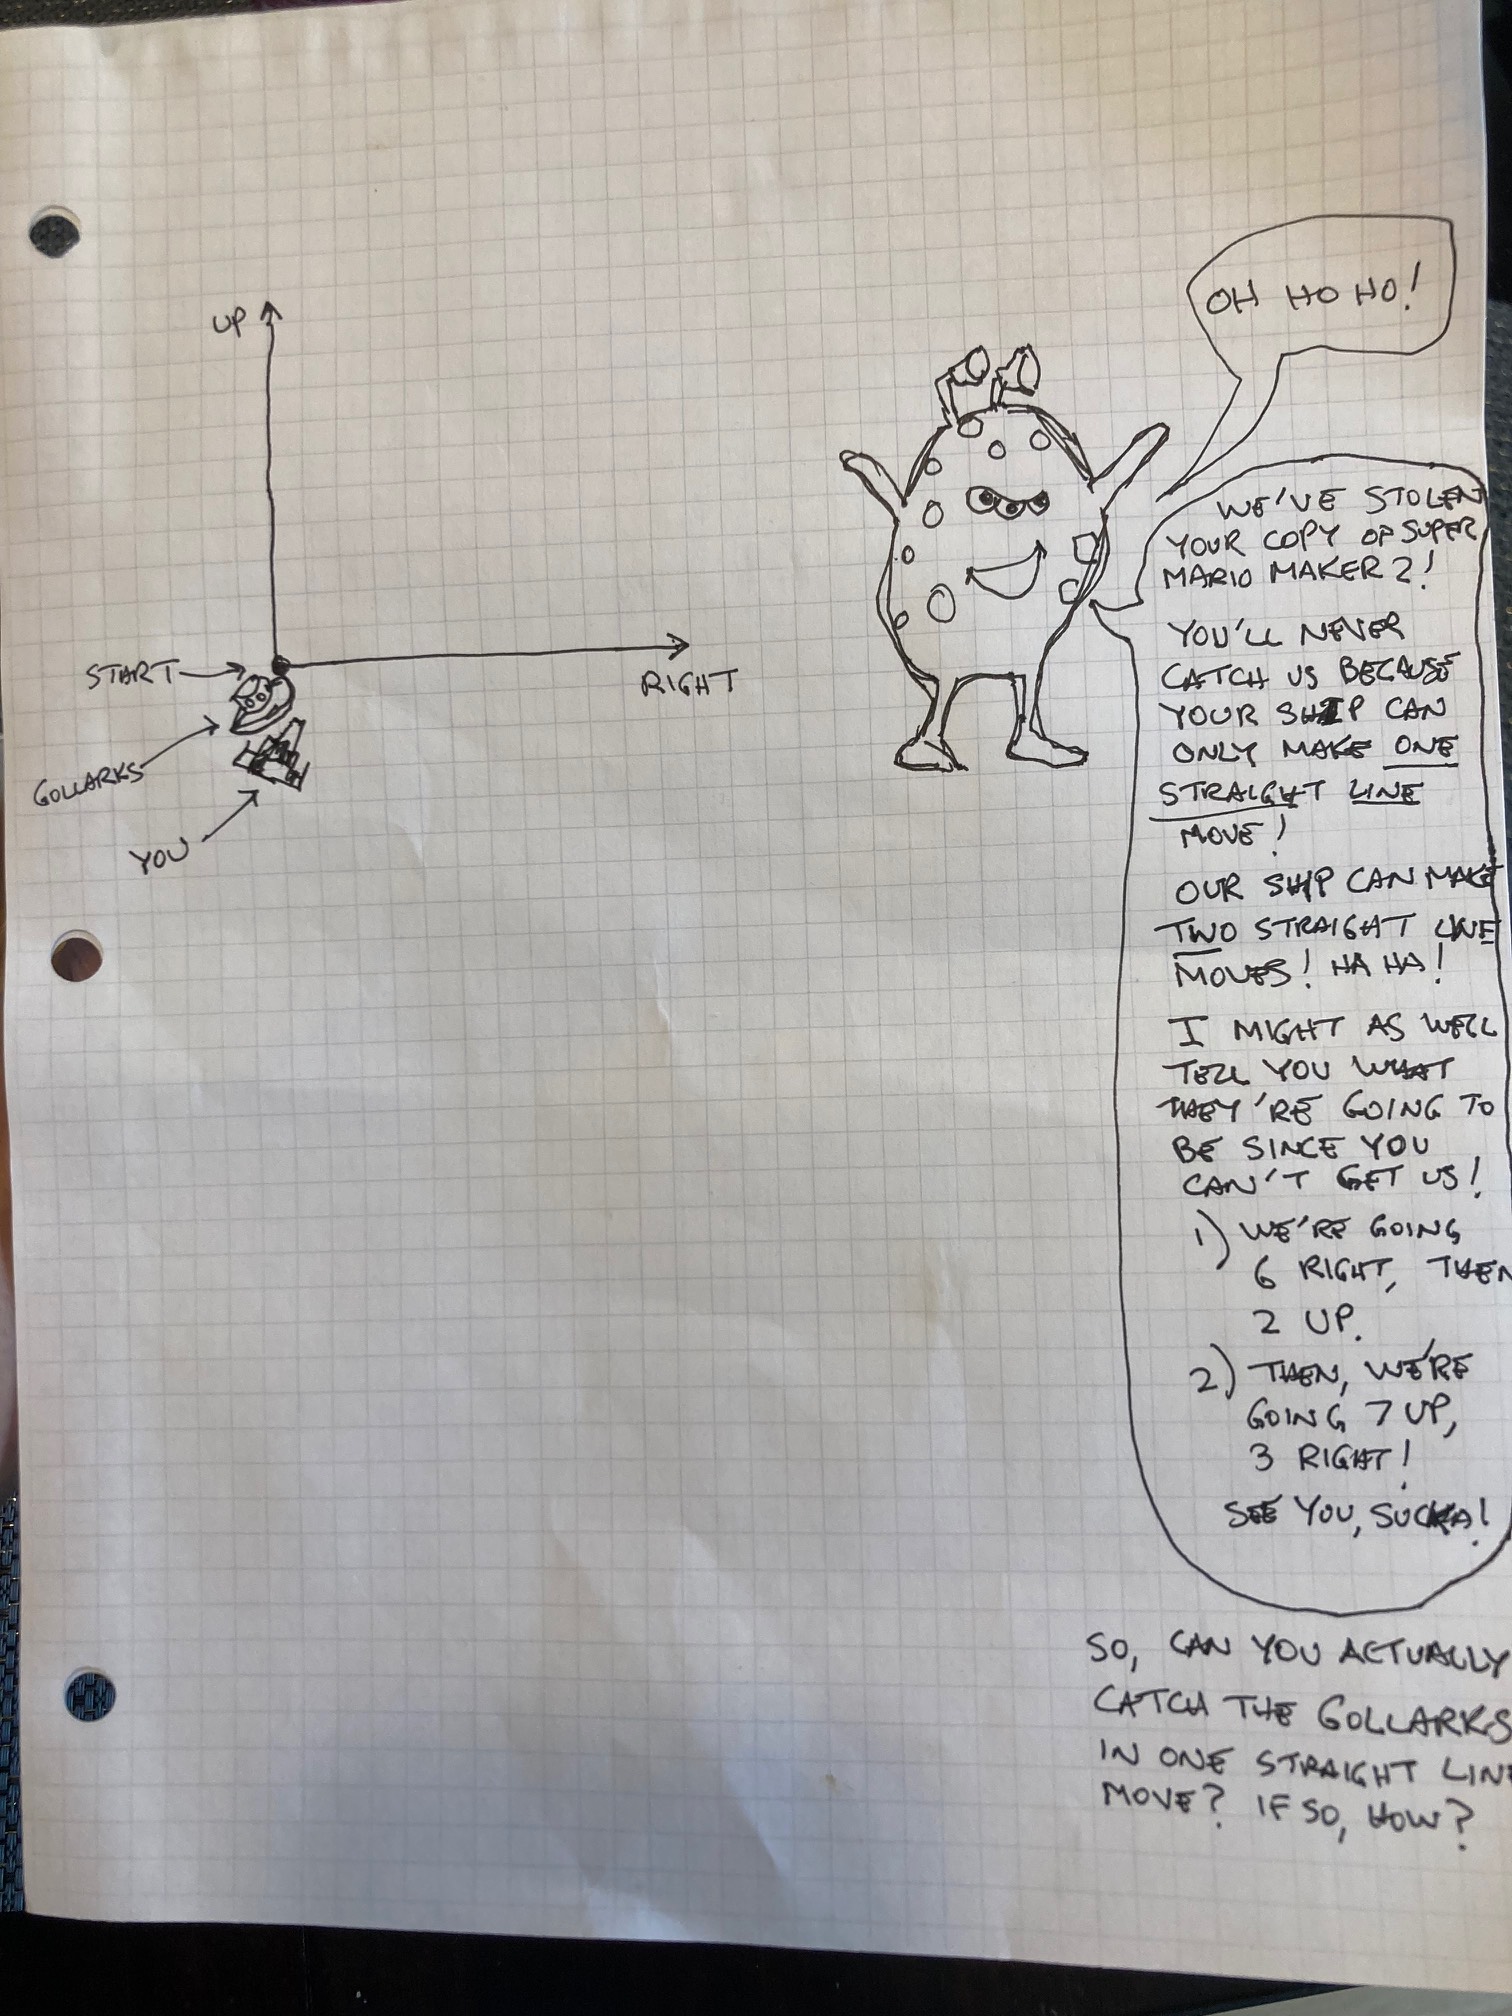 UP
START
RIGHT
GOLLARKS
YOU
OH HO HO!
WE'VE STOLEN
YOUR COPY OF SUPER
MARIO MAKER 2!
YOU'LL NEVER
CATCH US BECAUSE
YOUR SHIP CAN
ONLY MAKE ONE
STRAIGHT LINE
MOVE!
OUR SHIP CAN MAKE
TWO STRAIGHT LINE
MOVES! HA HA!
I MIGHT AS WELL
TELL YOU WHAT
THEY'RE GOING TO
BE SINCE YOU
CAN'T GET US!
1) WE'RE GOING
6 RIGHT, THEN
2 UP.
2) THEN, WE'RE
GOING 7 UP,
3 RIGHT!
SEE YOU, SUCKA!
SO, CAN YOU ACTUALLY
CATCH THE GOLLARKS
IN ONE STRAIGHT LINE
MOVE? IF SO, HOW?